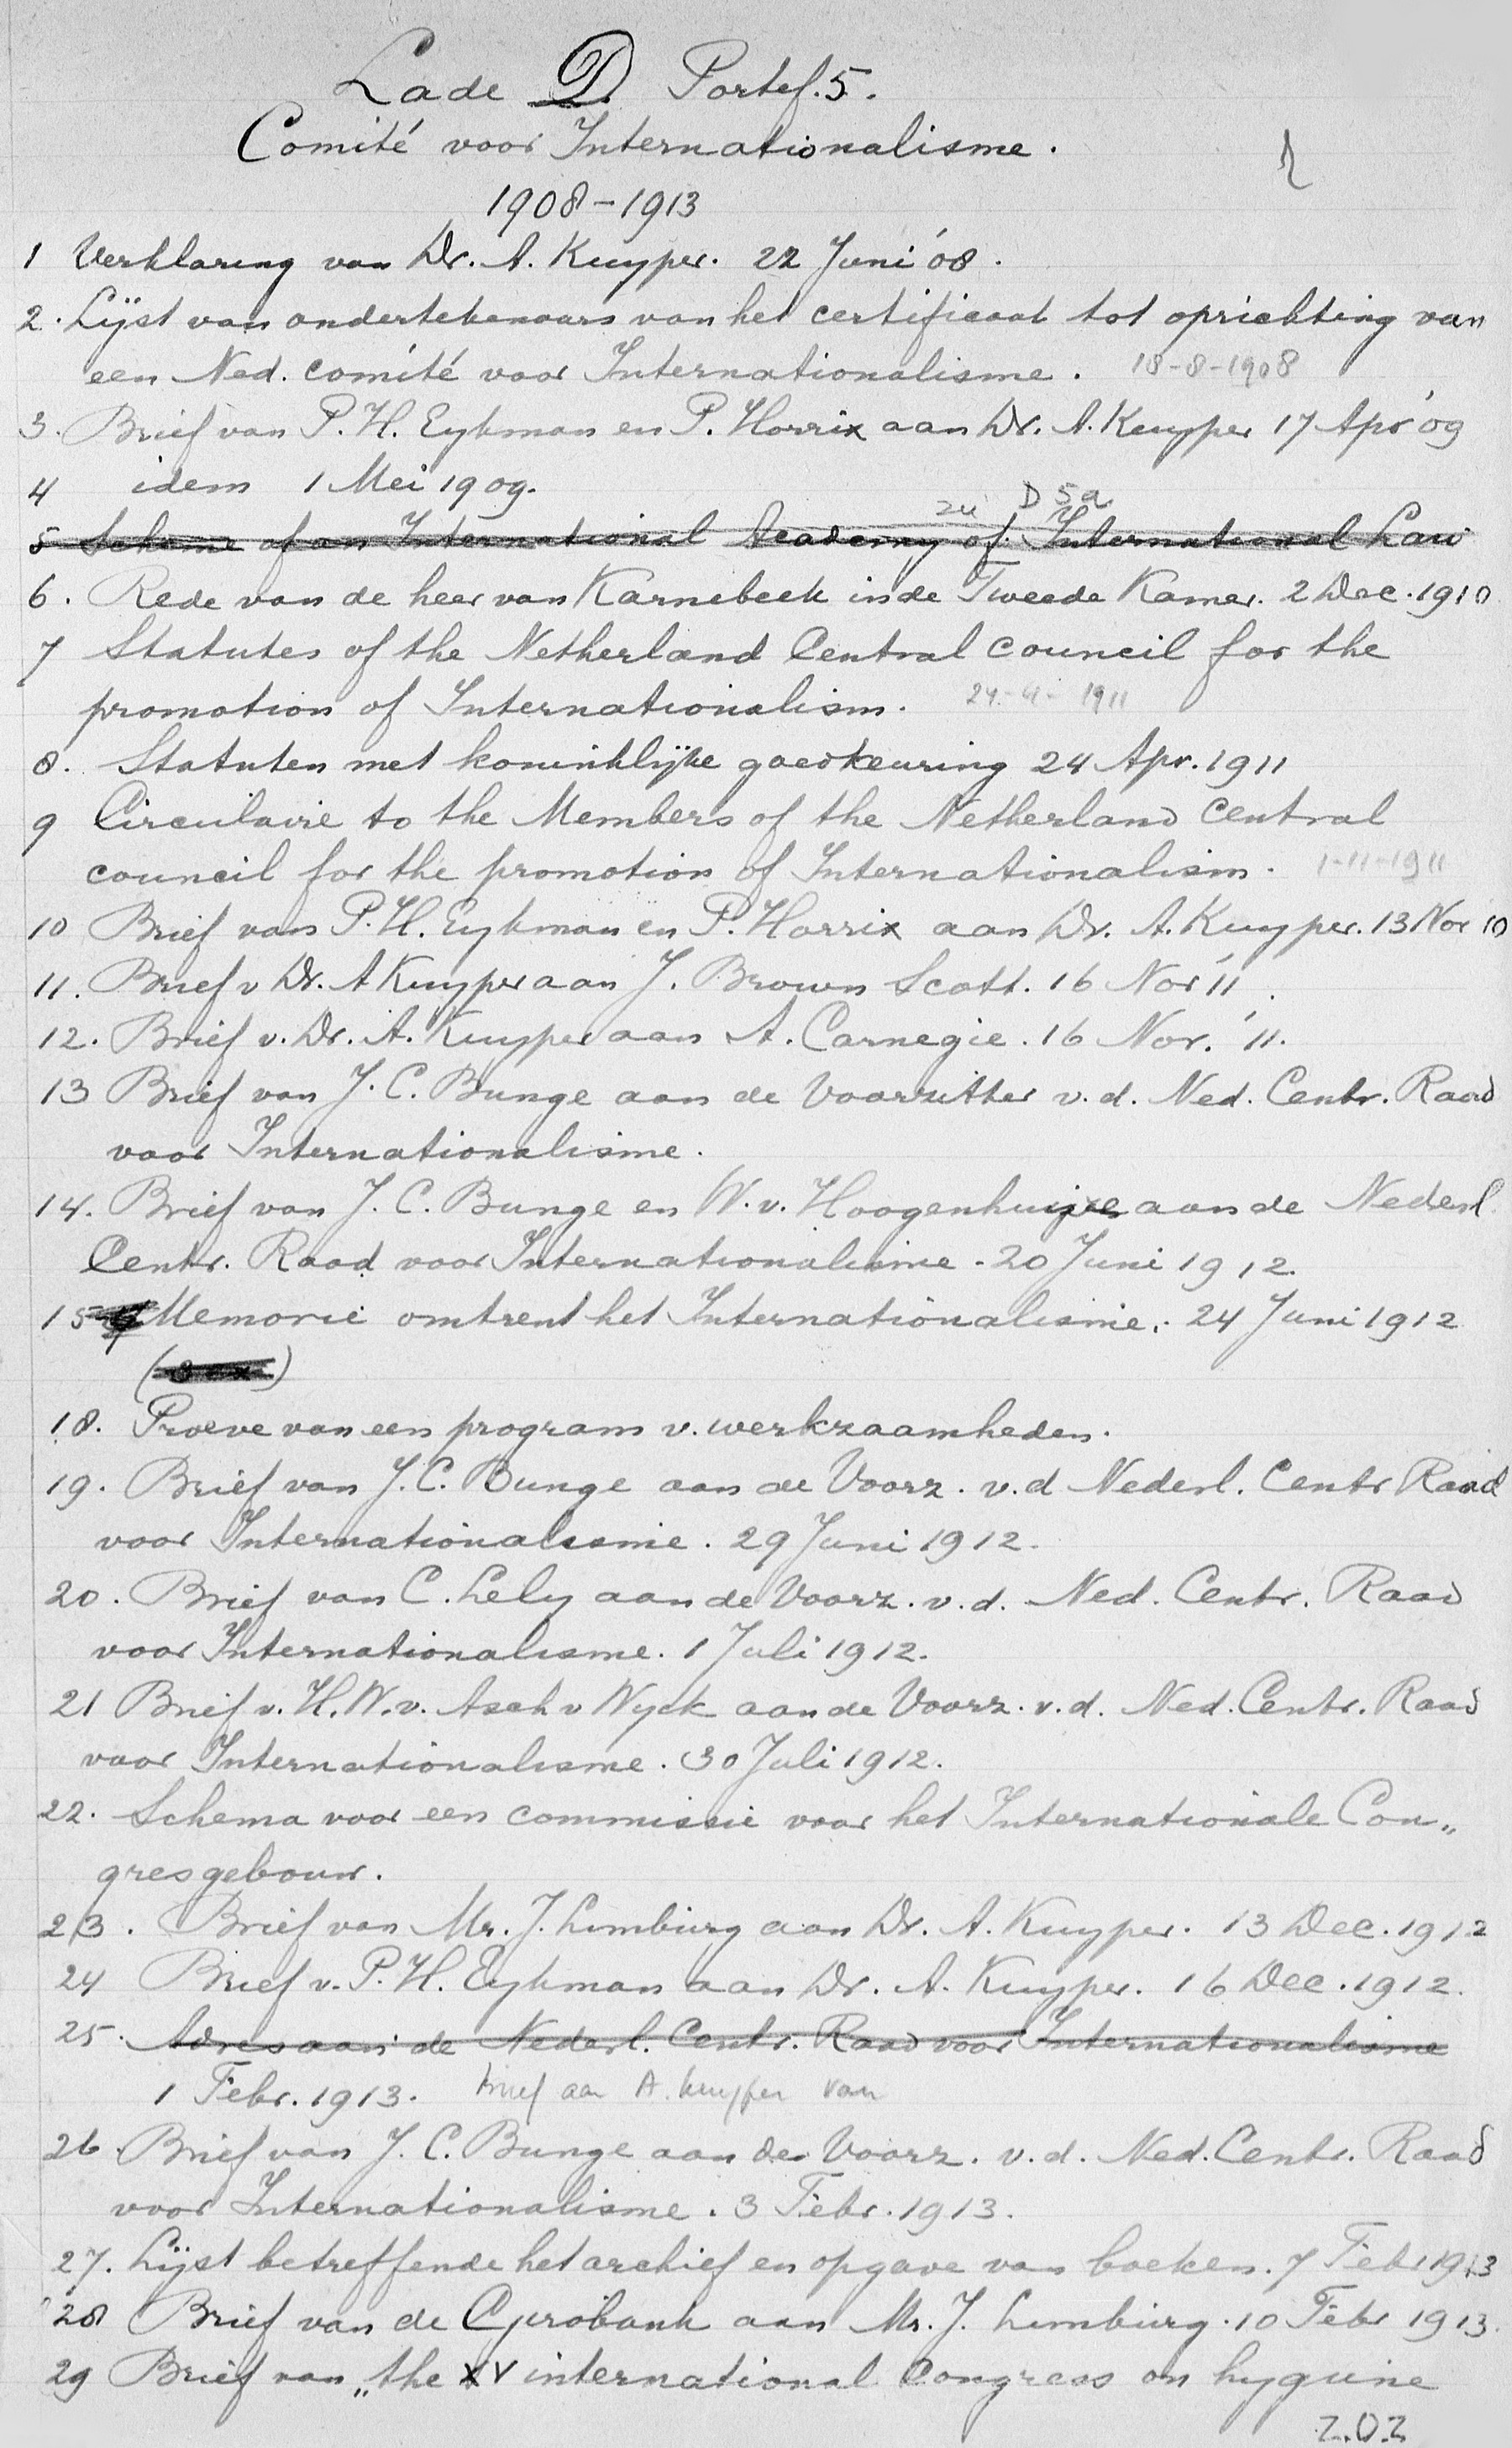 Lade D. Portef. 5.
Comité voor Internationalisme.
1908-1913
1 Verklaring van Dr. A. Kuyper. 22 Juni '08.
2. Lijst van ondertekenaars van het certificaat tot oprichting van
een Ned. comité voor Internationalisme. 18-8-1908
3. Brief van P. H. Eykman en P. Horrix aan Dr. A. Kuyper 17 Apr '09
4 idem 1 Mei 1909.
zie D 5a
5 Scheme of an International Academy of International Law
6. Rede van de heer van Karnebeek in de Tweede Kamer. 2 Dec. 1910
7 Statutes of the Netherland Central council for the
promotion of Internationalism. 24-4-1911
8. Statuten met koninklijke goedkeuring 24 Apr. 1911
9 Circulaire to the Members of the Netherland Central
council for the promotion of Internationalism. 1-11-1911
10 Brief van P. H. Eykman en P. Horrix aan Dr. A. Kuyper. 13 Nov 10
11. Brief v Dr. A Kuyper aan J. Brown Scott. 16 Nov '11.
12. Brief v. Dr. A. Kuyper aan A. Carnegie. 16 Nov. '11.
13 Brief van J. C. Bunge aan de Voorzitter v. d. Ned. Centr. Raad
voor Internationalisme.
14. Brief van J. C. Bunge en W. v. Hoogenhuijze aan de Nederl.
Centr. Raad voor Internationalisme. 20 Juni 1912.
15 Memorie omtrent het Internationalisme. 24 Juni 1912
18. Proeve van een program v. werkzaamheden.
19. Brief van J. C. Bunge aan de Voorz. v. d Nederl. Centr Raad
voor Internationalisme. 29 Juni 1912.
20. Brief van C. Lely aan de Voorz. v. d. Ned. Centr. Raad
voor Internationalisme. 1 Juli 1912.
21 Brief v. H. W. v. Asch v Wyck aan de Voorz. v. d. Ned. Centr. Raad
voor Internationalisme. 30 Juli 1912.
22. Schema voor een commissie voor het Internationale Con„
gresgebouw.
23. Brief van Mr. J. Limburg aan Dr. A. Kuyper. 13 Dec. 1912
24 Brief v. P. H. Eykman aan Dr. A. Kuyper. 16 Dec. 1912.
25. Adres aan de Nederl. Centr. Raad voor Internationalisme
1 Febr. 1913. brief aan A. Kuyper van
26. Brief van J. C. Bunge aan de Voorz. v. d. Ned. Centr. Raad
voor Internationalisme. 3 Febr. 1913.
27. Lijst betreffende het archief en opgave van boeken. 7 Febr 1913
28 Brief van de Gyrobank aan Mr. J. Limburg. 10 Febr 1913.
29 Brief van „the XV international Congress on hygiine
Z.O.Z